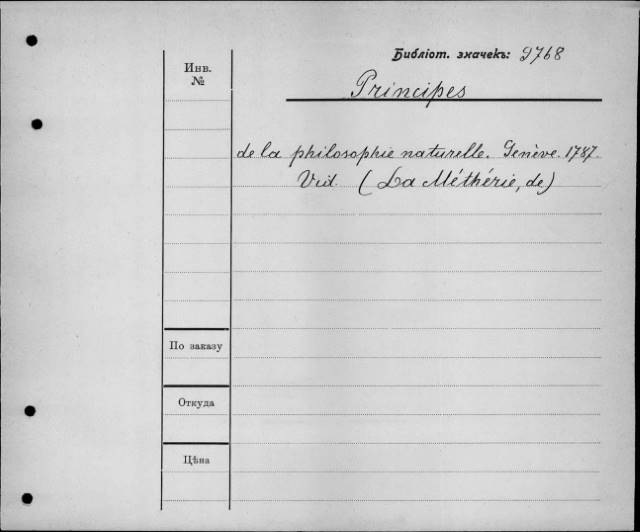 Библіот. значекъ: 9768
Инв.
№
Principes
de la philosophie naturelle. Genève. 1787.
Vid. (La Méthérie, de)
По заказу
Откуда
Цѣна